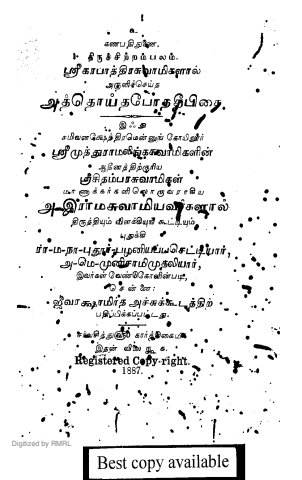 உ
கணபதிதுணை.
திருச்சிற்றம்பலம்.
ஸ்ரீகாபாத்திரசுவாமிகளால்
அருளிச்செய்த
அத்தொய்தபோததீபிகை
இஃது
கோயிலூர்
ஸ்ரீமுத்துராமலிங்கசுவாமிகளின்
ஆதினத்திற்குரிய
ஸ்ரீசிதம்பரசுவாமிகள்
மாணாக்கர்களிலொருவராகிய
அ-இராமசுவாமியவர்களால்
திருத்தியும் விளக்கியும் கூட்டியும்
புதுக்கி
அ-மெ-முனிசாமிமுதலியார்,
இவர்கள் வேண்டுகோளின்படி,
சென்னை:
அச்சுக்கூடத்திற்
பதிப்பிக்கப்பட்டது.
கார்த்திகைமீ
இதன் விலை ரூ
Registered Copy-right.
1887.
Digitized by RMRL
Best copy available